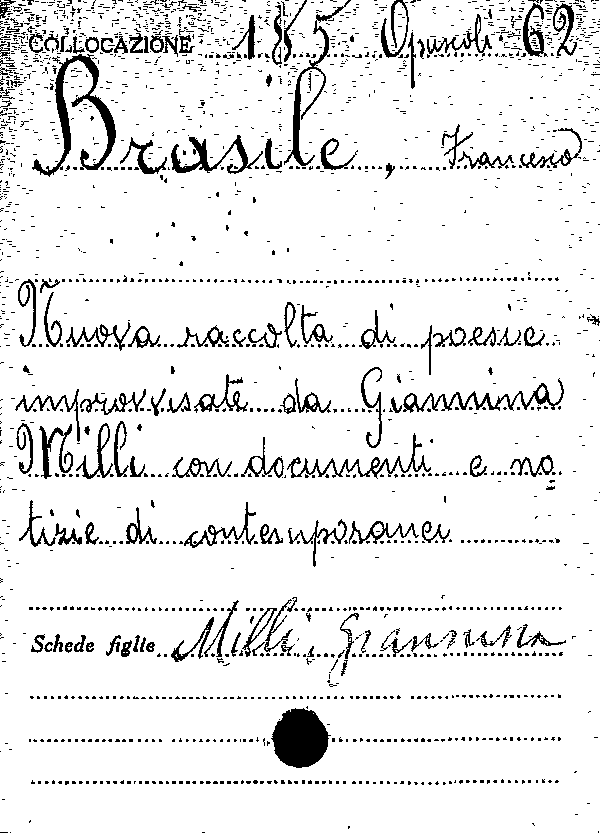 COLLOCAZIONE 185. Opuscoli 62
Brasile, Francesco
Nuova raccolta di poesie
improvvisate da Giannina
Milli con documenti e no=
tizie di contemporanei
Schede figlie Milli, Giannina